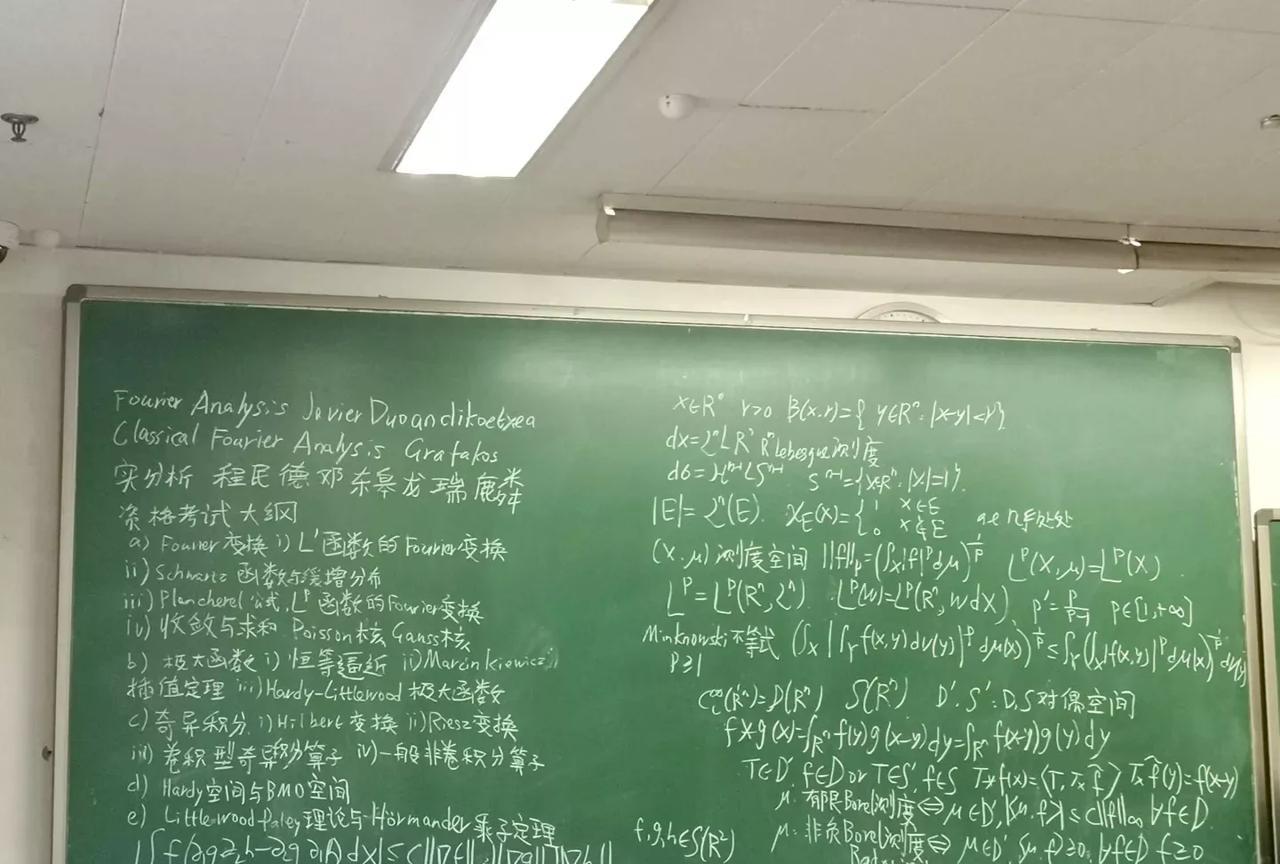 Fourier Analysis Javier Duoandikoetxea
Classical Fourier Analysis Grafakos
实分析 程民德 邓东皋 龙瑞麟
资格考试大纲
a) Fourier变换 i) L¹函数的Fourier变换
ii) Schwartz 函数与缓增分布
iii) Plancherel公式, L^p函数的Fourier变换
iv) 收敛与求和 Poisson核 Gauss核
b) 极大函数 i) 恒等逼近 ii) Marcinkiewicz
插值定理 iii) Hardy-Littlewood 极大函数
c) 奇异积分 i) Hilbert变换 ii) Riesz变换
iii) 卷积型奇异积分算子 iv) 一般非卷积分算子
d) Hardy空间与BMO空间
e) Littlewood-Paley理论与Hörmander乘子定理
x∈Rⁿ r>0 B(x,r)={y∈Rⁿ: |x-y|<r}
Lebesgue测度
Sⁿ⁻¹={x∈Rⁿ: |x|=1}
|E|=Lⁿ(E). χ_E(x)={1 x∈E
0 x∉E a.e 几乎处处
(X,μ)测度空间 ||f||_p=(∫_X|f|^p dμ)^{1/p} L^p(X,μ)=L^p(X)
L^p=L^p(Rⁿ,Lⁿ) L^p(w)=L^p(Rⁿ,wdx) p'=p/(p-1) p∈[1,+∞]
Minknowski不等式 (∫_X|∫_Y f(x,y)dν(y)|^p dμ(x))^{1/p}≤∫_Y(∫_X|f(x,y)|^p dμ(x))^{1/p}dν(y)
p≥1
C_c^∞(Rⁿ)=D(Rⁿ) S(Rⁿ) D'.S':D,S对偶空间
f*g(x)=∫_{Rⁿ}f(y)g(x-y)dy=∫_{Rⁿ}f(x-y)g(y)dy
T∈D' f∈D or T∈S', f∈S T*f(x)=⟨T,
μ:有限Borel测度⇔μ∈D', |⟨μ,f⟩|≤c||f||∞ ∀f∈D
f,g,h∈S(R²)
μ:非负Borel测度⇔μ∈D', ⟨μ,f⟩≥0, ∀f∈D f≥0